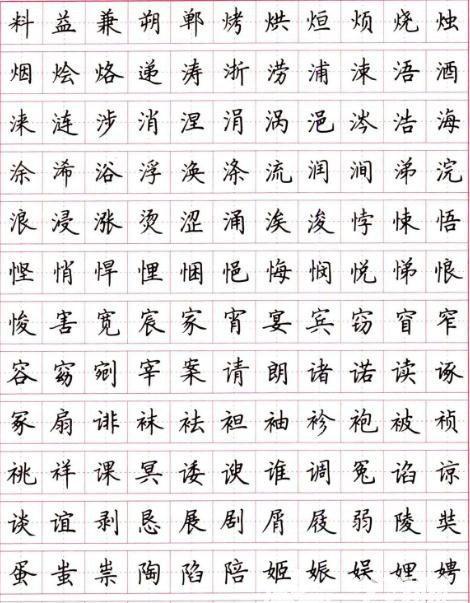 料益兼朔郸烤烘烜烦烧烛
烟烩烙递涛浙涝浦涑浯酒
涞涟涉消涅涓涡浥涔浩海
涂浠浴浮涣涤流润涧涕浣
浪浸涨烫涩涌涘浚悖悚悟
悭悄悍悝悃悒悔悯悦悌悢
悛害宽宸家宵宴宾窍窅窄
容窈剜宰案请朗诸诺读诼
冢扇诽袜袪袒袖袗袍被祯
祧祥课冥诿谀谁调冤谄谅
谈谊剥恳展剧屑屐弱陵奘
蛋蚩祟陶陷陪姬娠娱娌娉